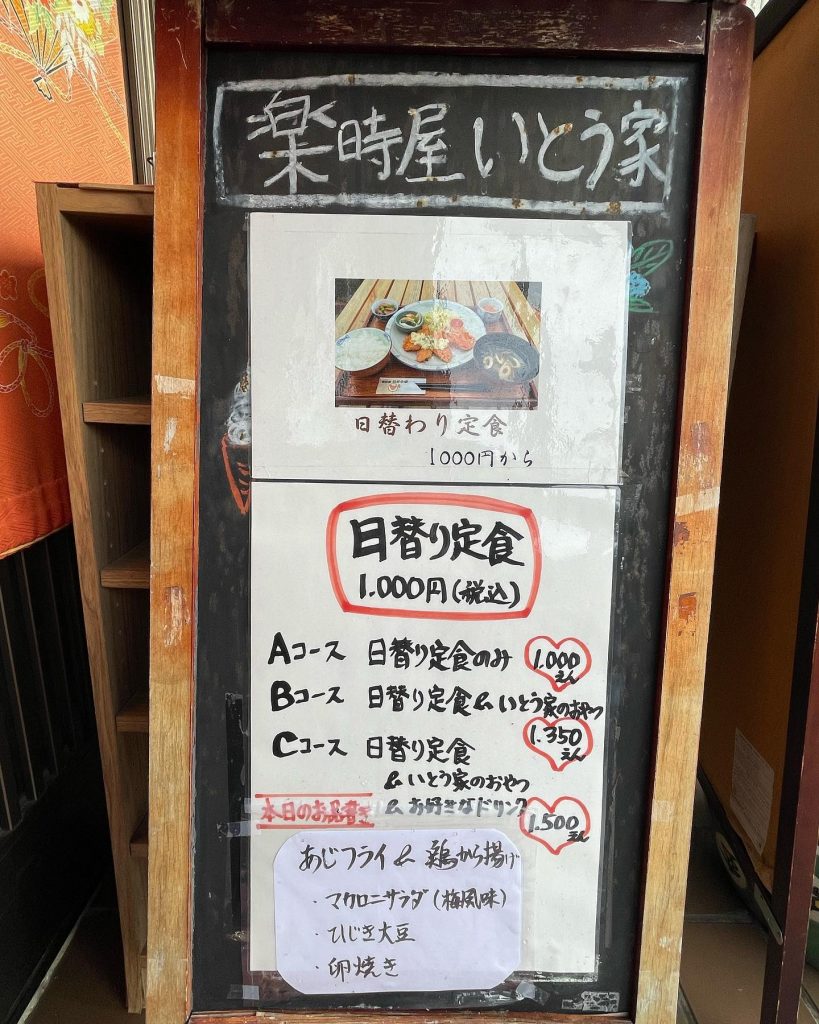 楽時屋いとう家
日替わり定食
1000円から
日替り定食
1.000円(税込)
Aコース 日替り定食のみ 1.000えん
Bコース 日替り定食&いとう家のおやつ
1.350えん
Cコース 日替り定食
&いとう家のおやつ
&お好きなドリンク
1.500えん
本日のお品書き
あじフライ&鶏から揚げ
・マカロニサラダ(梅風味)
・ひじき大豆
・卵焼き